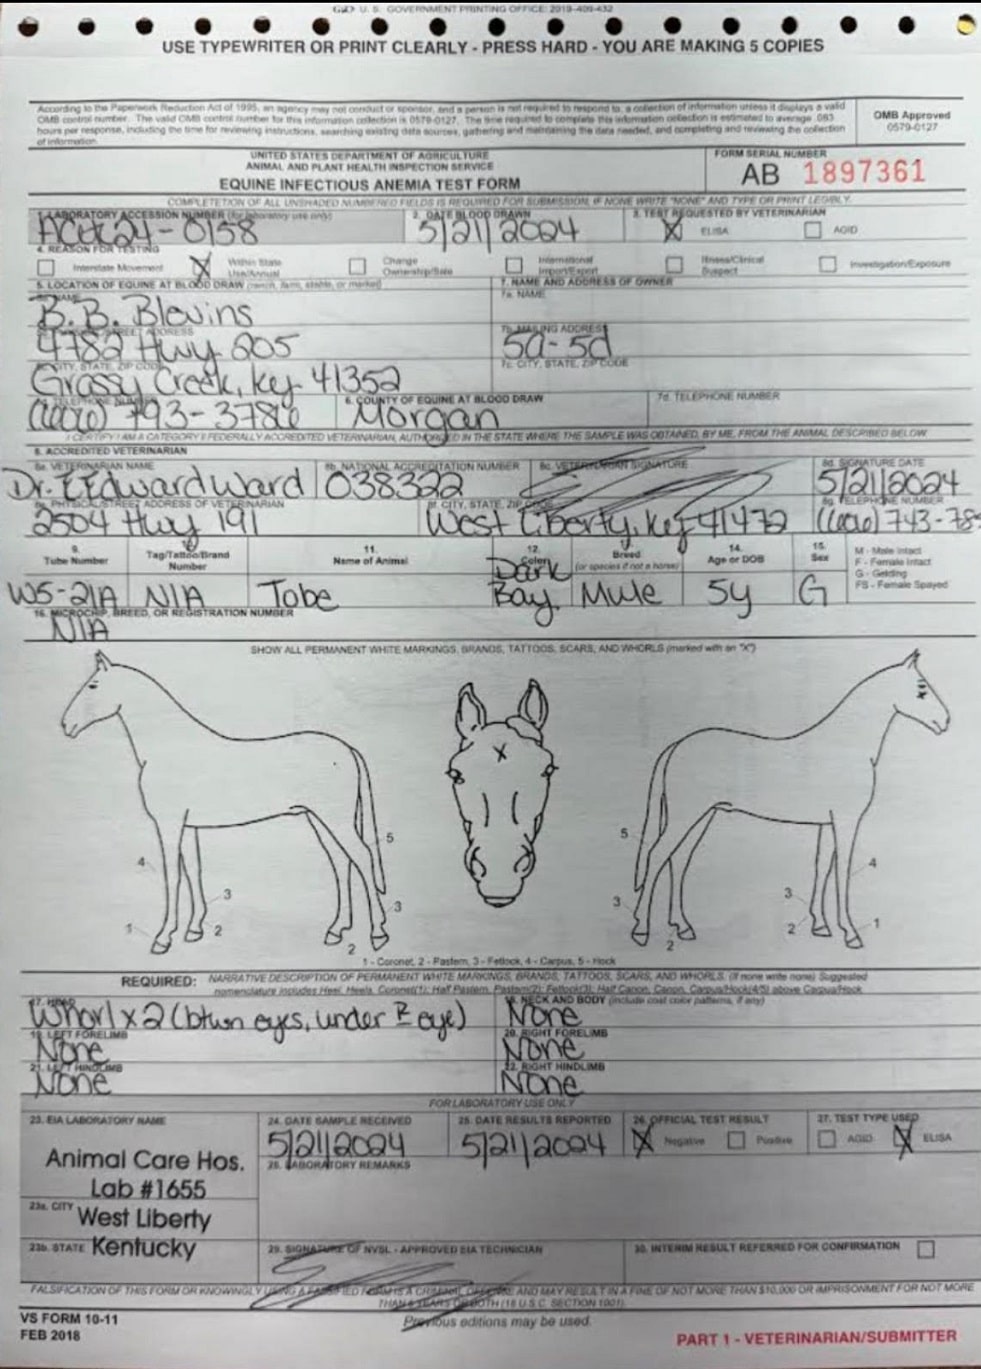 GPO U. S. GOVERNMENT PRINTING OFFICE: 2019-409-432
USE TYPEWRITER OR PRINT CLEARLY - PRESS HARD - YOU ARE MAKING 5 COPIES
According to the Paperwork Reduction Act of 1995, an agency may not conduct or sponsor, and a person is not required to respond to, a collection of information unless it displays a valid
OMB control number. The valid OMB control number for this information collection is 0579-0127. The time required to complete this information collection is estimated to average .083
hours per response, including the time for reviewing instructions, searching existing data sources, gathering and maintaining the data needed, and completing and reviewing the collection
of information.
OMB Approved
0579-0127
UNITED STATES DEPARTMENT OF AGRICULTURE
ANIMAL AND PLANT HEALTH INSPECTION SERVICE
EQUINE INFECTIOUS ANEMIA TEST FORM
FORM SERIAL NUMBER
AB 1897361
COMPLETETION OF ALL UNSHADED NUMBERED FIELDS IS REQUIRED FOR SUBMISSION. IF NONE WRITE "NONE" AND TYPE OR PRINT LEGIBLY.
1. LABORATORY ACCESSION NUMBER (for laboratory use only)
ACHC24-0158
2. DATE BLOOD DRAWN
5/21/2024
3. TEST REQUESTED BY VETERINARIAN
X ELISA
AGID
4. REASON FOR TESTING
Interstate Movement
X Within State Use/Annual
Change Ownership/Sale
International Import/Export
Illness/Clinical Suspect
Investigation/Exposure
5. LOCATION OF EQUINE AT BLOOD DRAW (ranch, farm, stable, or market)
NAME
B. B. Blevins
STREET ADDRESS
4782 Hwy 205
CITY, STATE, ZIP CODE
Grassy Creek, Ky 41352
TELEPHONE NUMBER
(606) 793-3786
6. COUNTY OF EQUINE AT BLOOD DRAW
Morgan
7. NAME AND ADDRESS OF OWNER
7a. NAME
7b. MAILING ADDRESS
5a-5d
7c. CITY, STATE, ZIP CODE
7d. TELEPHONE NUMBER
I CERTIFY I AM A CATEGORY II FEDERALLY ACCREDITED VETERINARIAN, AUTHORIZED IN THE STATE WHERE THE SAMPLE WAS OBTAINED, BY ME, FROM THE ANIMAL DESCRIBED BELOW
8. ACCREDITED VETERINARIAN
8a. VETERINARIAN NAME
Dr. E Edward Ward
8b. NATIONAL ACCREDITATION NUMBER
038322
8c. VETERINARIAN SIGNATURE
8d. SIGNATURE DATE
5/21/2024
8e. PHYSICAL/STREET ADDRESS OF VETERINARIAN
2504 Hwy 191
8f. CITY, STATE, ZIP CODE
West Liberty, Ky 41472
8g. TELEPHONE NUMBER
(606) 743-785
9. Tube Number
WS-21A
10. Tag/Tattoo/Brand Number
N/A
11. Name of Animal
Tobe
12. Color
Dark Bay
13. Breed (or species if not a horse)
Mule
14. Age or DOB
5y
15. Sex
G
M - Male Intact
F - Female Intact
G - Gelding
FS - Female Spayed
16. MICROCHIP, BREED, OR REGISTRATION NUMBER
N/A
SHOW ALL PERMANENT WHITE MARKINGS, BRANDS, TATTOOS, SCARS, AND WHORLS (marked with an "X")
X
5 5
4 4
3 3
1 2 3 3 2 1
2 2
1 - Coronet, 2 - Pastern, 3 - Fetlock, 4 - Carpus, 5 - Hock
REQUIRED: NARRATIVE DESCRIPTION OF PERMANENT WHITE MARKINGS, BRANDS, TATTOOS, SCARS, AND WHORLS. (If none write none) Suggested
nomenclature includes Heel, Heels, Coronet(1); Half Pastern, Pastern(2); Fetlock(3); Half Canon, Canon, Carpus/Hock(4/5) above Carpus/Hock
17. HEAD
Whorl x 2 (btwn eyes, under eye)
18. NECK AND BODY (include coat color patterns, if any)
None
19. LEFT FORELIMB
None
20. RIGHT FORELIMB
None
21. LEFT HINDLIMB
None
22. RIGHT HINDLIMB
None
FOR LABORATORY USE ONLY
23. EIA LABORATORY NAME
Animal Care Hos.
Lab #1655
23a. CITY West Liberty
23b. STATE Kentucky
24. DATE SAMPLE RECEIVED
5/21/2024
25. DATE RESULTS REPORTED
5/21/2024
26. OFFICIAL TEST RESULT
X Negative
Positive
27. TEST TYPE USED
AGID
X ELISA
28. LABORATORY REMARKS
29. SIGNATURE OF NVSL - APPROVED EIA TECHNICIAN
30. INTERIM RESULT REFERRED FOR CONFIRMATION
FALSIFICATION OF THIS FORM OR KNOWINGLY USING A FALSIFIED FORM IS A CRIMINAL OFFENSE AND MAY RESULT IN A FINE OF NOT MORE THAN $10,000 OR IMPRISONMENT FOR NOT MORE
THAN 5 YEARS OR BOTH (18 U.S.C. SECTION 1001).
VS FORM 10-11
FEB 2018
Previous editions may be used.
PART 1 - VETERINARIAN/SUBMITTER